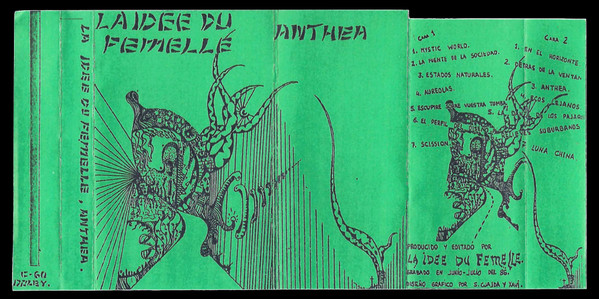 LA IDEE DU FEMELLE, ANTHEA.
C-60
DOLBY.
LA IDEE DU
FEMELLE
ANTHEA
CARA 1
1. MYSTIC WORLD.
2. LA MENTE DE LA SOCIEDAD.
3. ESTADOS NATURALES.
4. AUREOLAS.
5. ESCUPIRE SOBRE VUESTRA TUMBA
6. EL PERFIL
7. SCISSION
CARA 2
1. EN EL HORIZONTE
2. DETRAS DE LA VENTANA
3. ANTHEA.
4. ECOS LEJANOS
5. LA DE LOS PAJAROS
SUBURBANOS
7 LUNA CHINA
PRODUCIDO Y EDITADO POR
LA IDEE DU FEMELLE.
GRABADO EN JUNIO-JULIO DEL 86.
DISEÑO GRAFICO POR S. Y JAVI.